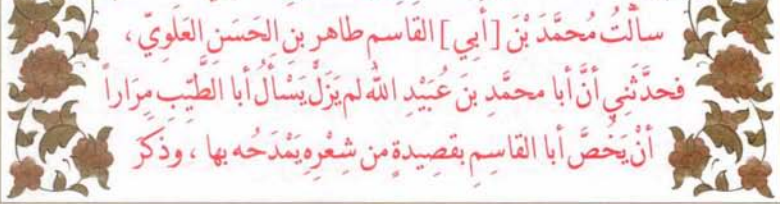 سألْتُ مُحمَّدَ بْنَ [أبي] القَاسم طاهر بن الحَسَن العَلَويّ ،
فحدَّثَني أنَّ أبا محمَّدِ بنَ عُبَيْدِ اللّٰه لم يَزَلْ يَسْألُ أبا الطَّيّبِ مِرَاراً
أنْ يَخُصَّ أبا القاسِم بقصِيدةٍ من شِعْرِهِ يَمْدَحُه بها ، وذكَر